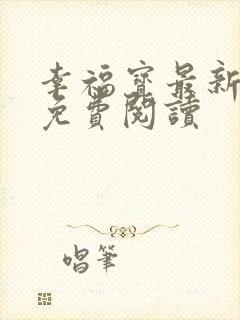 幸福寶最新
免費閱讀
唱筆